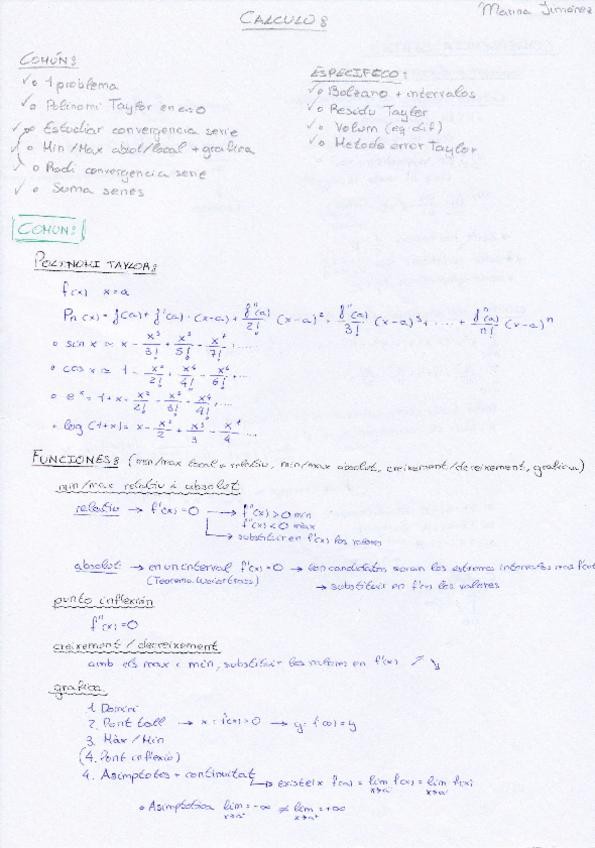 CALCULO:
Marina Jiménez
COMÚN:
✓ o 1 problema
✓ o Polinomi Taylor en a=0
✓ o Estudiar convergencia serie
✓ o Min/Max absol/local + grafica
✓ o Radi convergencia serie
✓ o Suma series
ESPECIFICO:
✓ o Bolzano + intervalos
✓ o Residu Taylor
✓ o Volum (eq dif)
✓ o Metodo error Taylor
COMÚN:
POLYNOMI TAYLOR:
f(x) x=a
Pn(x) = f(a) + f'(a)·(x-a) + f''(a)/2! (x-a)² + f'''(a)/3! (x-a)³ + .... + fⁿ(a)/n! (x-a)ⁿ
o sin x ≈ x - x³/3! + x⁵/5! - x⁷/7! ....
o cos x ≈ 1 - x²/2! + x⁴/4! - x⁶/6! ....
o eˣ = 1 + x - x²/2! - x³/3! - x⁴/4! ....
o log (1+x) = x - x²/2 + x³/3 - x⁴/4 ....
FUNCIONES: (min/max local = relatiu, min/max absolut, creixement/decreixement, grafica)
min/max relatiu i absolut
relatiu → f'(x) = 0 → f''(x) > 0 min
f''(x) < 0 màx
→ substituir en f(x) los valores
absolut → en un interval f'(x) = 0 → son candidatos seran los extremos intervalos mas f'(x)
(Teorema Weierstrass) → substituir en f(x) los valores
punto inflexión
f''(x) = 0
creixement / decreixement
amb els max i min, substituir los valores en f'(x) ↗ ↘
grafica
1. Domini
2. Punt tall → x = f(x) = 0 → y = f(0) = y
3. Màx/Min
(4. Pont inflexió)
4. Asimptotes + continuitat
→ existeix f(a) = lim x→a⁻ f(x) = lim x→a⁺ f(x)
o Asimptotica lim x→a⁻ = -∞ ≠ lim x→a⁺ = +∞